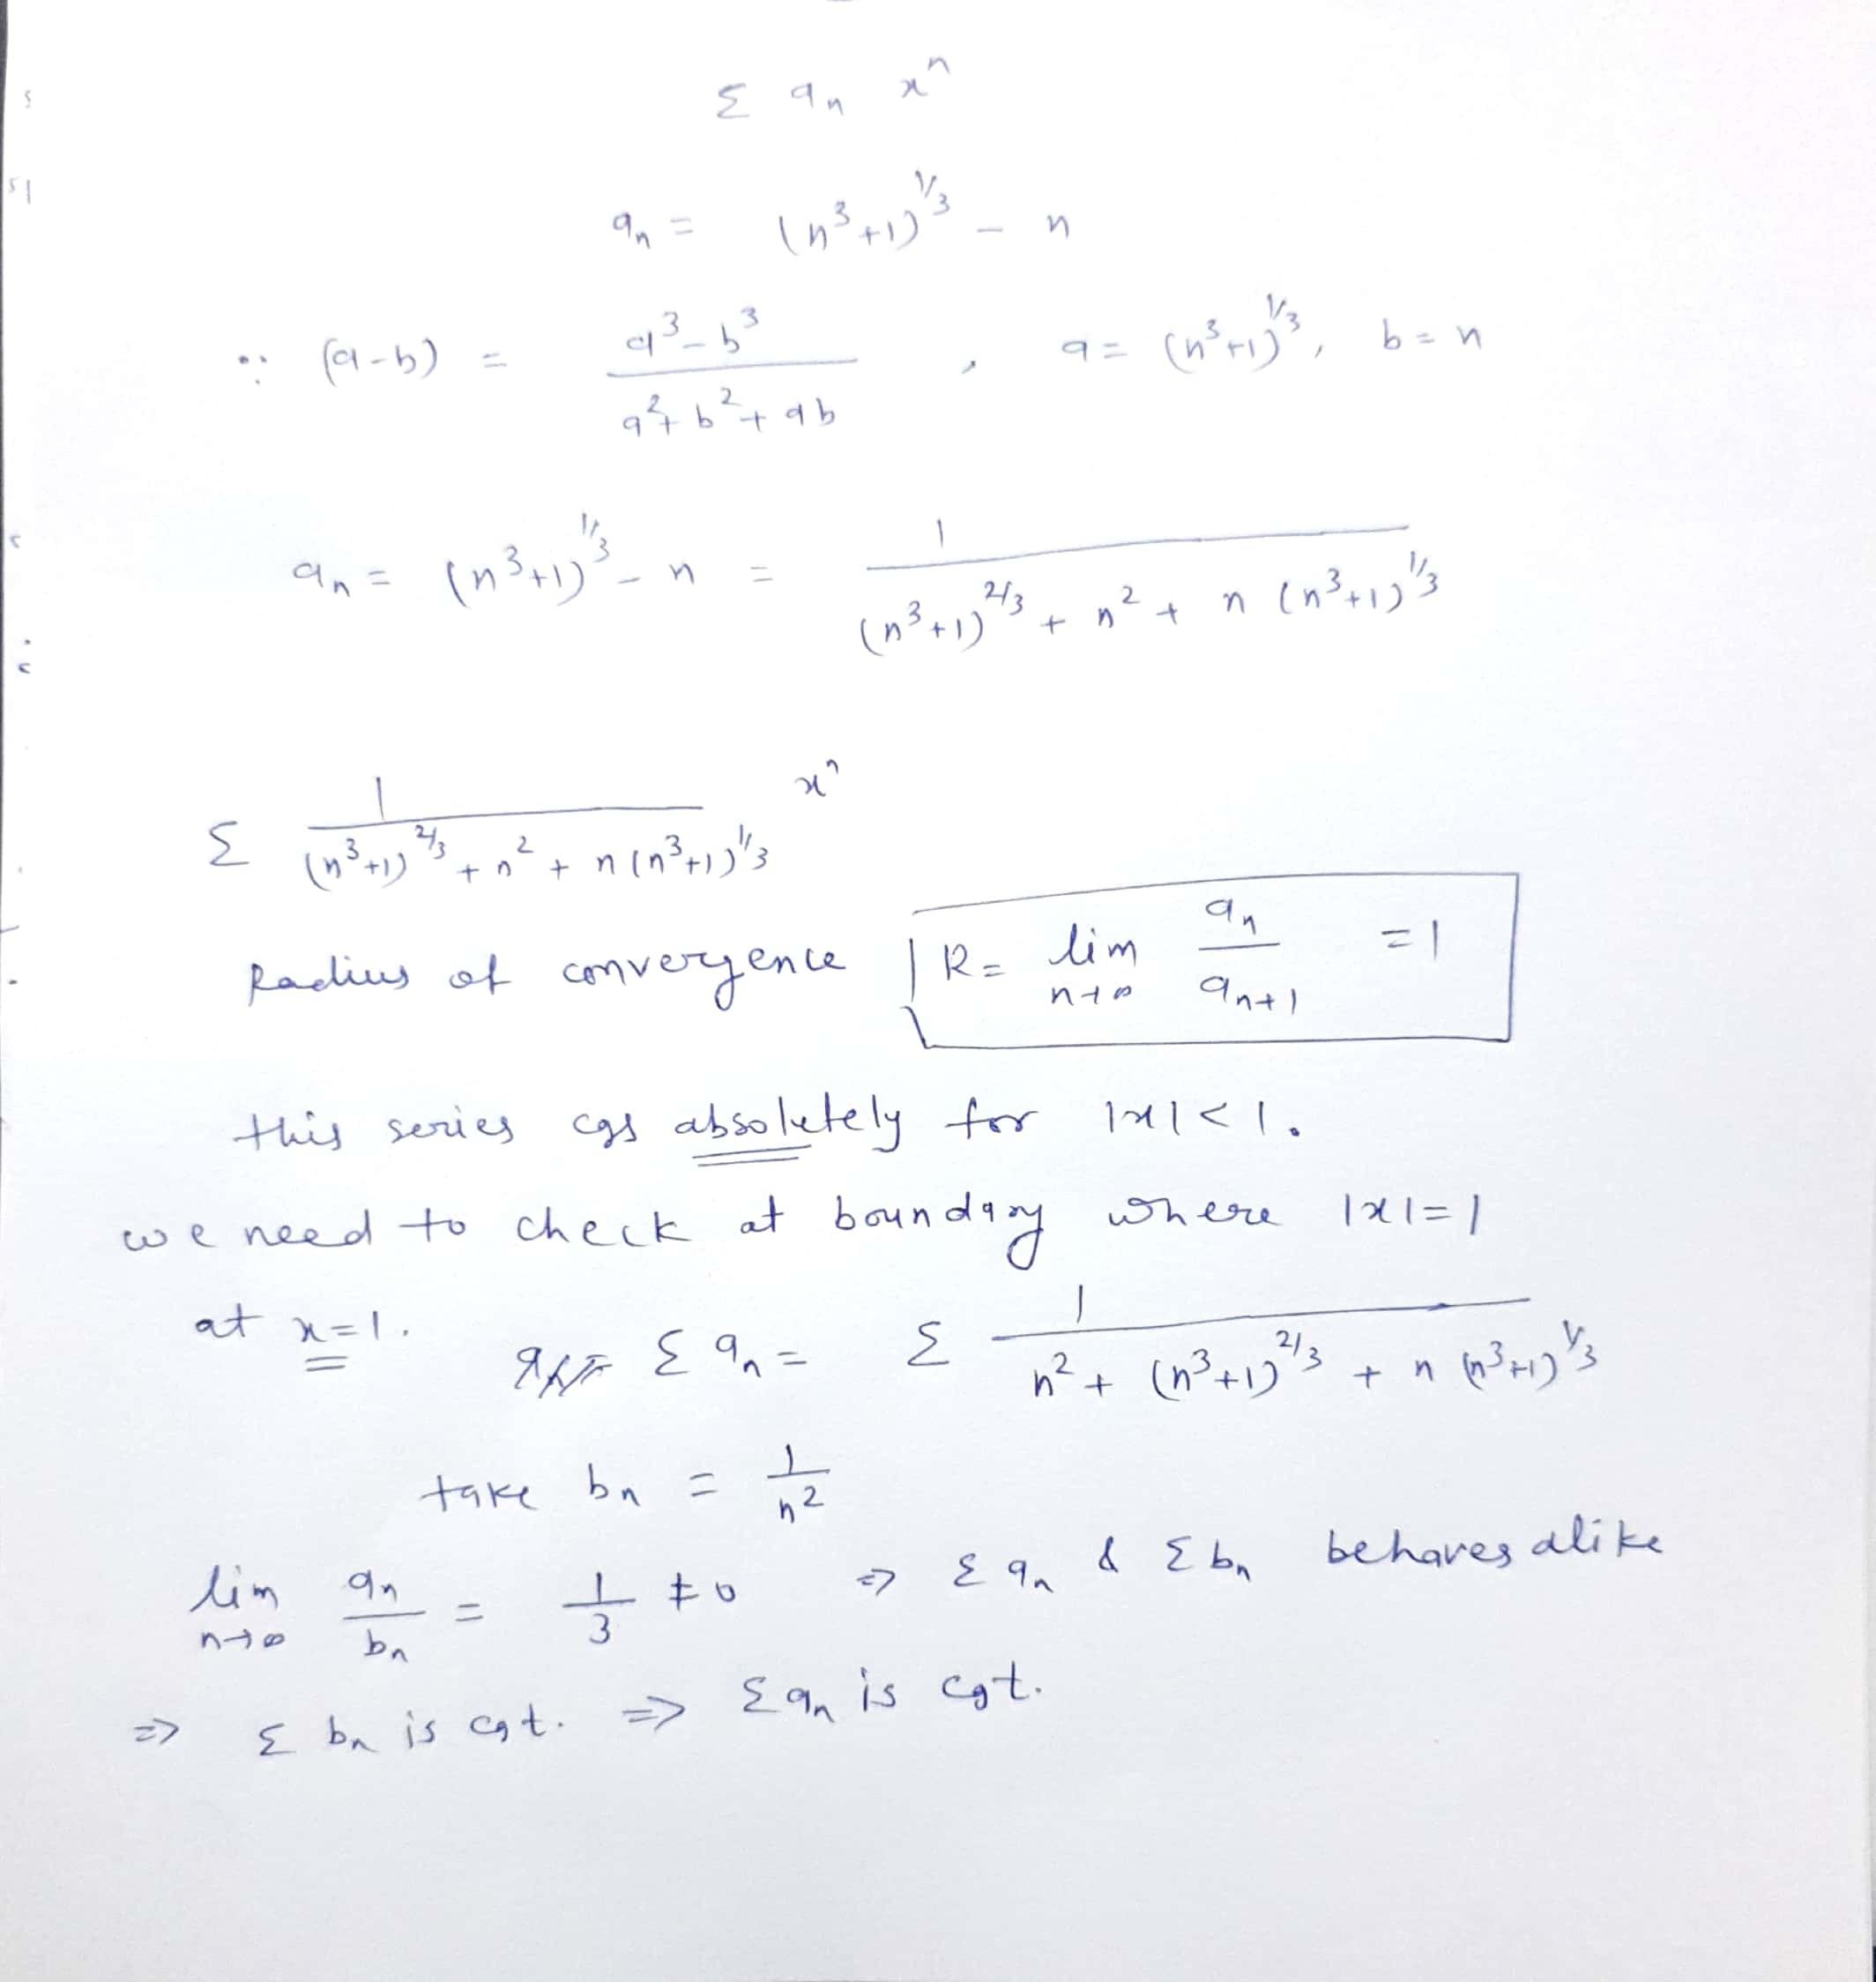 Σ aₙ xⁿ
aₙ = (n³+1)^{1/3} − n
∵ (a−b) = (a³−b³)/(a²+b²+ab) , a = (n³+1)^{1/3}, b = n
aₙ = (n³+1)^{1/3} − n = 1/((n³+1)^{2/3} + n² + n (n³+1)^{1/3})
Σ 1/((n³+1)^{2/3} + n² + n(n³+1)^{1/3}) xⁿ
Radius of convergence R = lim_{n→∞} aₙ/aₙ₊₁ = 1
this series cgs absolutely for |x|<1.
we need to check at boundary where |x|=1
at x=1. Σ aₙ = Σ 1/(n² + (n³+1)^{2/3} + n (n³+1)^{1/3})
take bₙ = 1/n²
lim_{n→∞} aₙ/bₙ = 1/3 ≠ 0 ⇒ Σ aₙ & Σ bₙ behaves alike
⇒ Σ bₙ is cgt. ⇒ Σ aₙ is cgt.